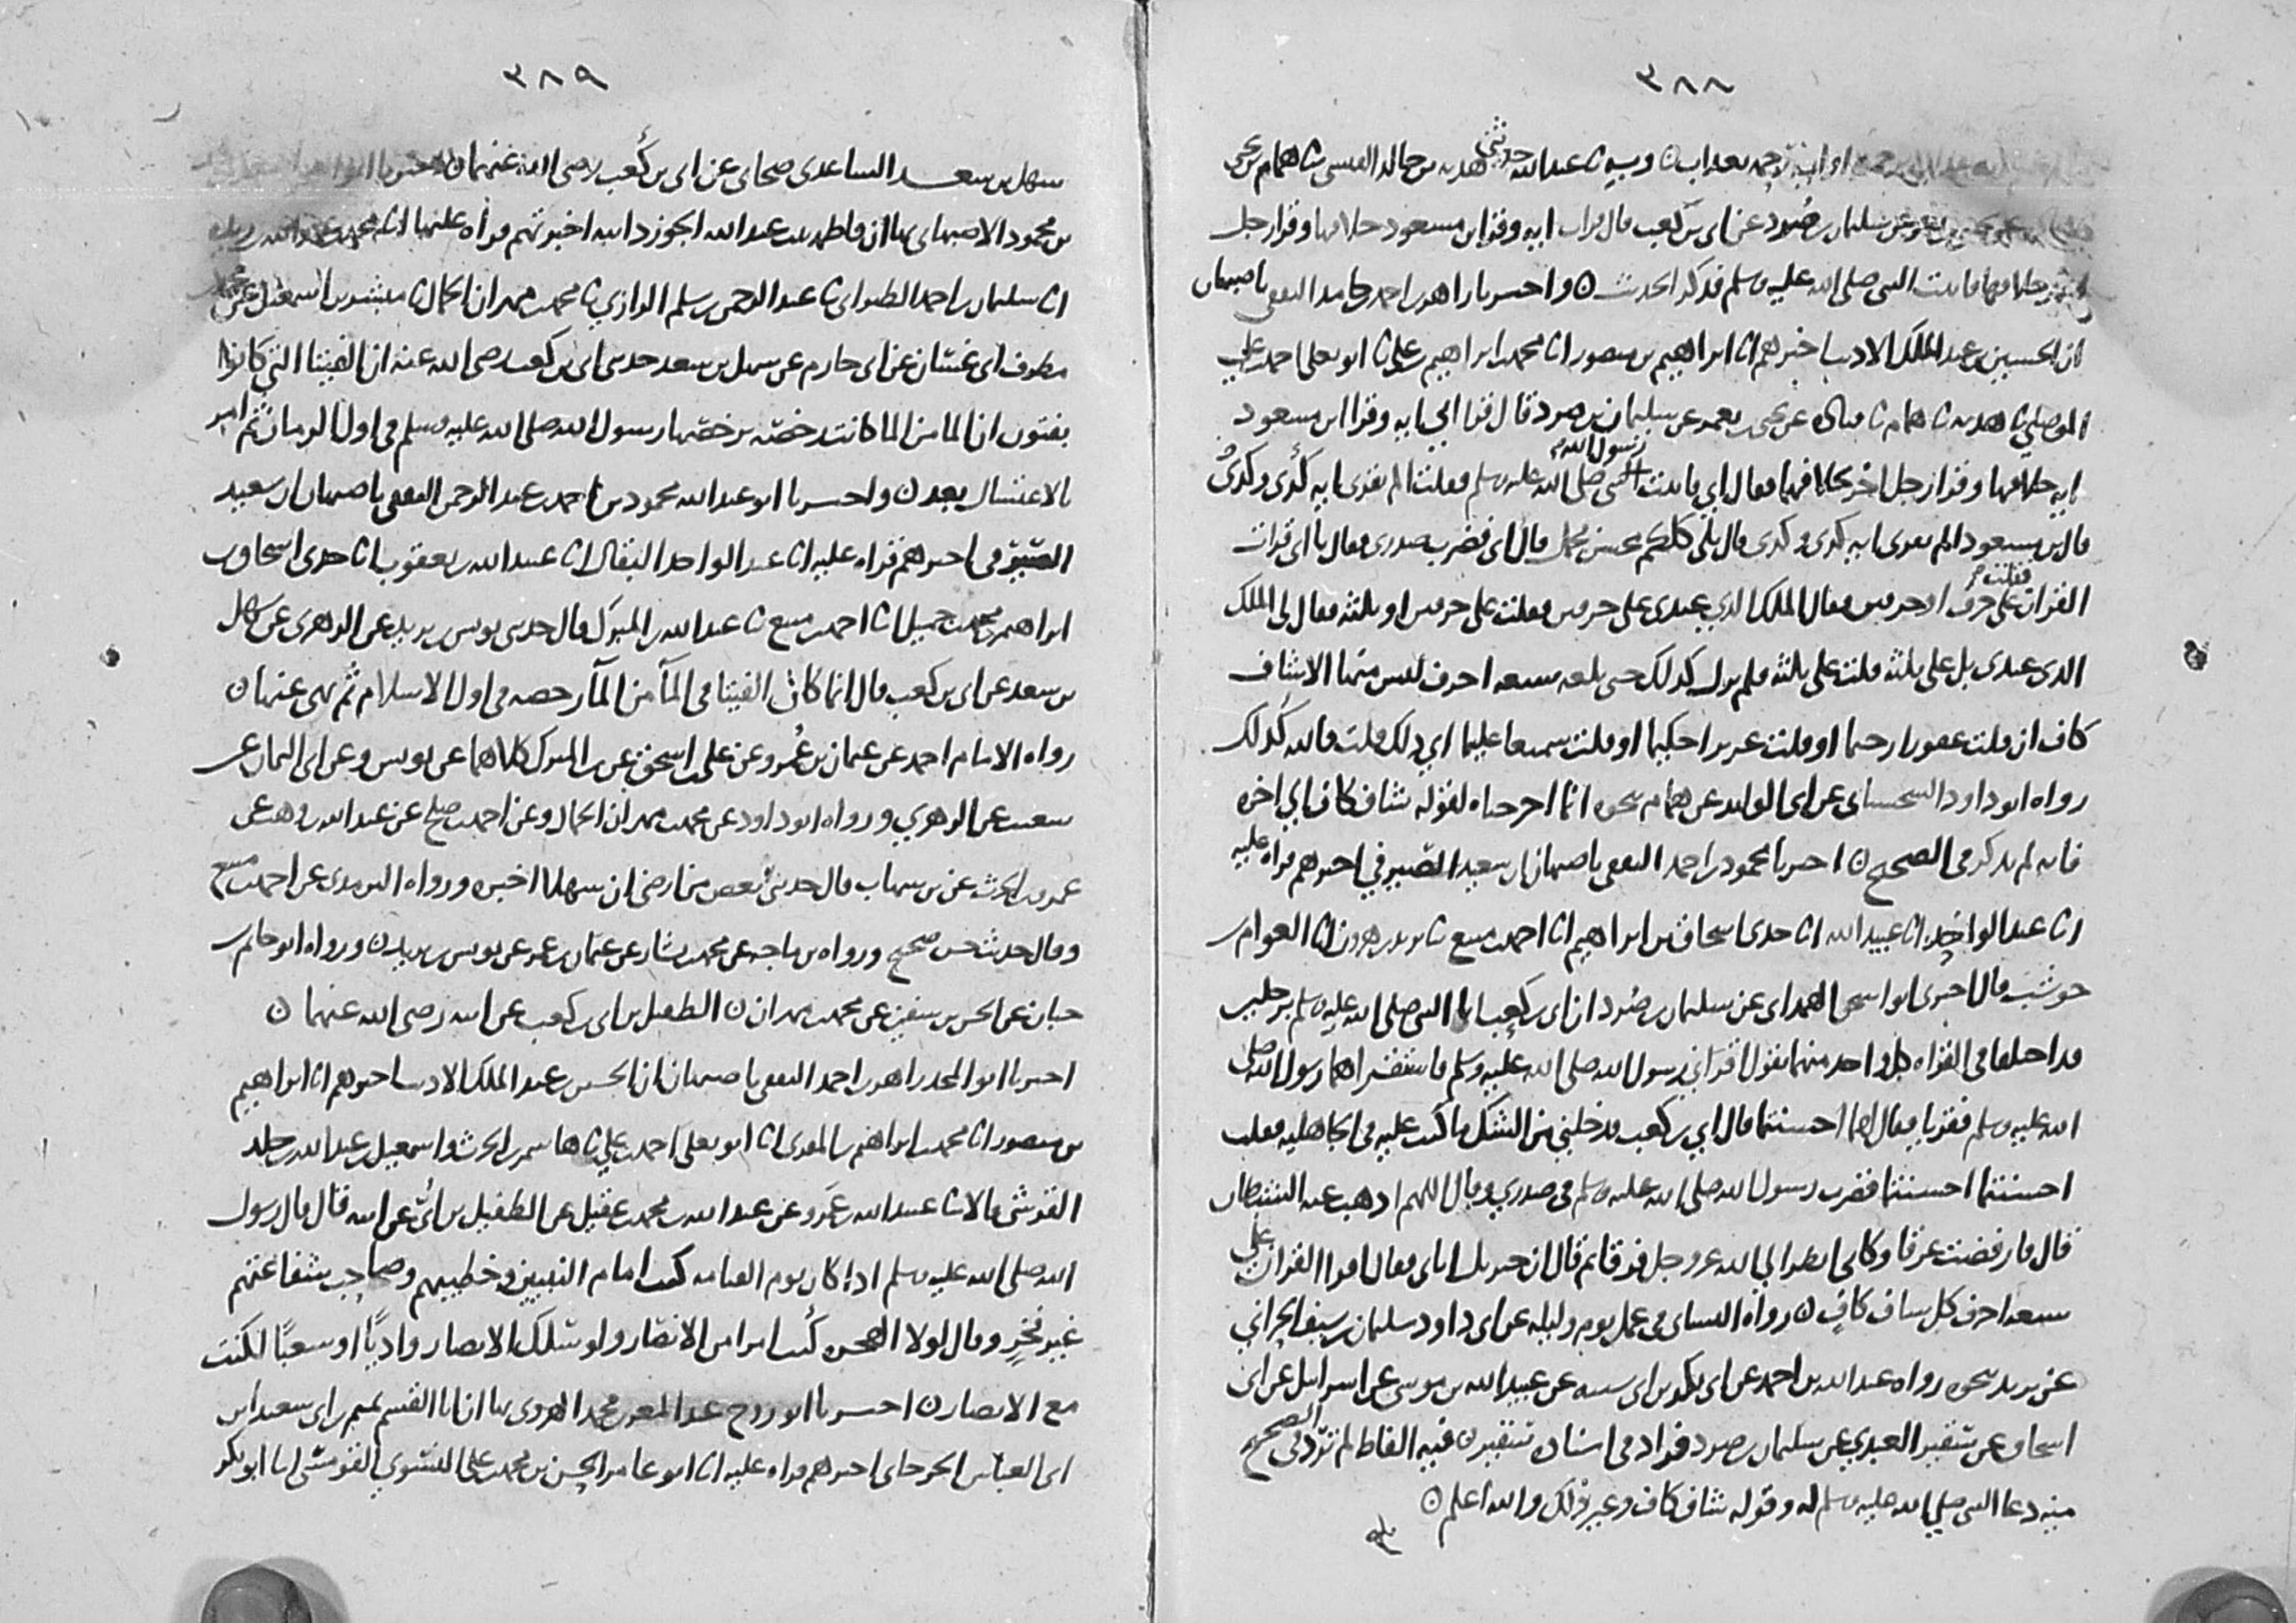 ٣٨٨
وبه ثنا عبد الله حدثني هدبة بن خالد القيسي ثنا همام بن يحيى
عن سليمان بن صرد عن أبي بن كعب قال قرأت آية وقرأ ابن مسعود خلافها وقرأ رجل
خلافهما فأتيت النبي صلى الله عليه وسلم فذكر الحديث ٥ وأخبرنا زاهر بن أحمد بن حامد الثقفي بأصبهان
أن الحسين بن عبد الملك الأديب أخبرهم أنا إبراهيم بن منصور أنا محمد بن إبراهيم بن علي أنا أبو يعلى أحمد بن علي
الموصلي ثنا هدبة ثنا همام ثنا قتادة عن يحيى بن يعمر عن سليمان بن صرد قال قرأ أبي آية وقرأ ابن مسعود
آية خلافها وقرأ رجل آخر خلافهما فقال أبي فأتيت رسول الله صلى الله عليه وسلم فقلت ألم تقرئني آية كذى وكذى
قال بن مسعود ألم تقرئني آية كذى وكذى قال بلى كلكم محسن مجمل قال أبي فضرب صدري وقال يا أبي قرأت
القرآن فقلت على حرف أو حرفين فقال الملك الذي عندي على حرفين فقلت على حرفين أو ثلثة فقال لي الملك
الذي عندي بل على ثلثة قلت على ثلثة فلم يزل كذلك حتى بلغه سبعة أحرف ليس منها إلا شاف
كاف إن قلت غفورا رحيما أو قلت عزيزا حكيما أو قلت سميعا عليما أي ذلك قلت فالله كذلك
رواه أبو داود السجستاني عن أبي الوليد عن همام بنحوه إنما أخرجناه لقوله شاف كاف إلى آخره
فإنه لم يذكر في الصحيح ن أخبرنا محمود بن أحمد الثقفي بأصبهان أن سعيد الصيرفي أخبرهم قراءة عليه
أنا عبد الواحد أنا عبيد الله أنا جدي إسحاق بن إبراهيم أنا أحمد بن منيع ثنا يزيد بن هرون أنا العوام بن
حوشب قال أخبرني أبو إسحق الهمداني عن سليمان بن صرد أن أبي بن كعب أتى النبي صلى الله عليه وسلم برجلين
قد اختلفا في القراءة كل واحد منهما يقول أقرأني رسول الله صلى الله عليه وسلم فاستقرأهما رسول الله صلى
الله عليه وسلم فقرآ فقال لهما أحسنتما قال أبي بن كعب فدخلني من الشك ما كنت عليه في الجاهلية فقلت
أحسنتما أحسنتما فضرب رسول الله صلى الله عليه وسلم في صدري وقال اللهم أذهب عنه الشيطان
قال فارفضضت عرقا وكأني أنظر إلى الله عز وجل فرقا ثم قال إن جبريل أتاني فقال اقرأ القرآن على
سبعة أحرف كل شاف كاف ن رواه النسائي في عمل يوم وليلة عن أبي داود سليمان بن سيف الحراني
عن يزيد بنحوه رواه عبد الله بن أحمد عن أبي بكر بن أبي شيبة عن عبيد الله بن موسى عن إسرائيل عن أبي
إسحاق عن شقير العبدي عن سليمان بن صرد فزاد في إسناده شقير ن فيه ألفاظ لم ترد في الصحيح
منه دعاء النبي صلى الله عليه وسلم له وقوله شاف كاف وغير ذلك والله أعلم ن
٣٨٩
سهل بن سعد الساعدي صحابي عن أبي بن كعب رضي الله عنهما ن أخبرنا
بن محمود الأصبهاني بها أن فاطمة بنت عبد الله الجوزدانية أخبرتهم قراءة عليها أنا محمد بن عبد الله بن ريذة
أنا سليمان بن أحمد الطبراني ثنا عبد الرحمن بن سلم الرازي ثنا محمد بن مهران الجمال ثنا مبشر بن إسمعيل عن محمد
مطرف أبي غسان عن أبي حازم عن سهل بن سعد حدثني أبي بن كعب رضي الله عنه أن الفتيا التي كانوا
يفتون أن الما من الما كانت رخصة رخصها رسول الله صلى الله عليه وسلم في أول الزمان ثم أمر
بالاغتسال بعد ن وأخبرنا أبو عبد الله محمود بن أحمد بن عبد الرحمن الثقفي بأصبهان أن سعيد
الصيرفي أخبرهم قراءة عليه أنا عبد الواحد البقال أنا عبيد الله بن يعقوب أنا جدي إسحاق بن
إبراهيم بن محمد بن جميل أنا أحمد بن منيع ثنا عبد الله بن المبرك قال حدثني يونس بن يزيد عن الزهري عن سهل
بن سعد عن أبي بن كعب قال إنما كان الفتيا في المآ من المآ رخصة في أول الإسلام ثم نهي عنها ن
رواه الإمام أحمد عن عثمان بن عمرو عن علي بن إسحق عن بن المبرك كلاهما عن يونس وعن أبي اليمان عن
شعيب عن الزهري ورواه أبو داود عن محمد بن مهران الجمال وعن أحمد بن صالح عن عبد الله بن وهب عن
عمرو بن الحرث عن بن شهاب قال حدثني بعض من أرضى أن سهلا أخبره ورواه الترمذي عن أحمد بن منيع
وقال حديث حسن صحيح ورواه بن ماجه عن محمد بن بشار عن عثمان بن عمر عن يونس بن يزيد ن ورواه أبو حاتم بن
حبان عن الحسن بن سفين عن محمد بن مهران ن الطفيل بن أبي بن كعب عن أبيه رضي الله عنهما ن
أخبرنا أبو المجد زاهر بن أحمد الثقفي بأصبهان أن الحسين بن عبد الملك الأديب أخبرهم أنا إبراهيم
بن منصور أنا محمد بن إبراهيم بن المقرئ أنا أبو يعلى أحمد بن علي ثنا هاشم بن الحرث وإسمعيل بن عبد الله بن خالد
القرشي قالا ثنا عبيد الله بن عمرو عن عبد الله بن محمد بن عقيل عن الطفيل بن أبي عن أبيه قال قال رسول
الله صلى الله عليه وسلم إذا كان يوم القيامة كنت إمام النبيين وخطيبهم وصاحب شفاعتهم
غير فخر وقال لولا الهجرة كنت امرأ من الأنصار ولو سلك الأنصار واديًا أو شعبًا لكنت
مع الأنصار ن أخبرنا أبو روح عبد المعز بن محمد الهروي بها أنا القسم تميم بن أبي سعيد بن
أبي العباس الجرجاني أخبرهم قراءة عليه أنا أبو عامر الحسن بن محمد بن علي النسوي القومسي أنا أبو بكر